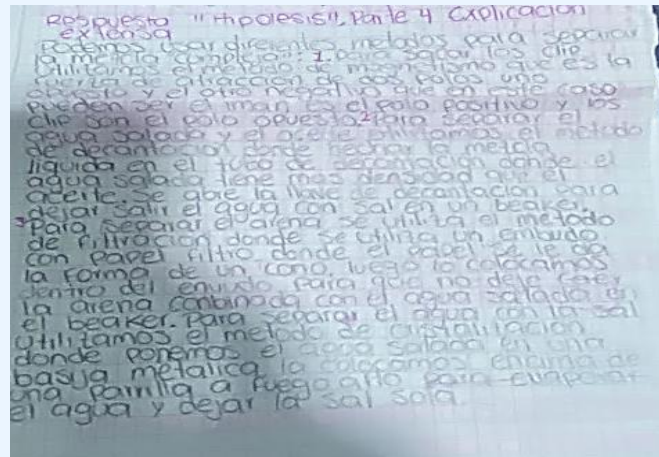 Respuesta "Hipotesis", Parte 4 Explicacion
extensa
Podemos usar diferentes metodos para separar
la mezcla compleja: 1. para sacar los clip
utilizamos el metodo de magnetismo que es la
fuerza de atraccion de dos polos uno
opuesto y el otro negativo que en este caso
pueden ser el iman es el polo positivo y los
clip son el polo opuesto. 2 Para separar el
agua salada y el aceite utilizamos el metodo
de decantacion donde la metcla
liquida en el tubo de decantacion donde el
agua salada tiene mas densidad que el
aceite. Se abre la llave de decantacion para
dejar salir el agua con sal en un beaker.
3 Para separar el arena se utiliza el metodo
de filtracion donde se utiliza un embudo
con papel filtro donde el papel se le da
la forma de un cono, luego lo colocamos
dentro del envudo para que no deje caer
la arena conbinada con el agua salada en
el beaker. Para separar el agua con la sal
utilizamos el metodo de cristalitacion
donde ponemos el agua salada en una
basija metalica la colocamos encima de
una parrilla a fuego alto para evaporar
el agua y dejar la sal sola